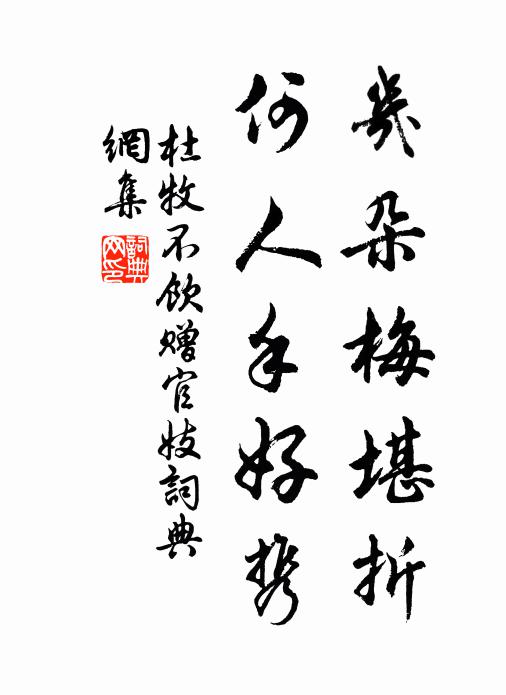 幾朵梅堪折
何人手好携
杜牧不飲贈官妓詞典
網集
詞典
网印